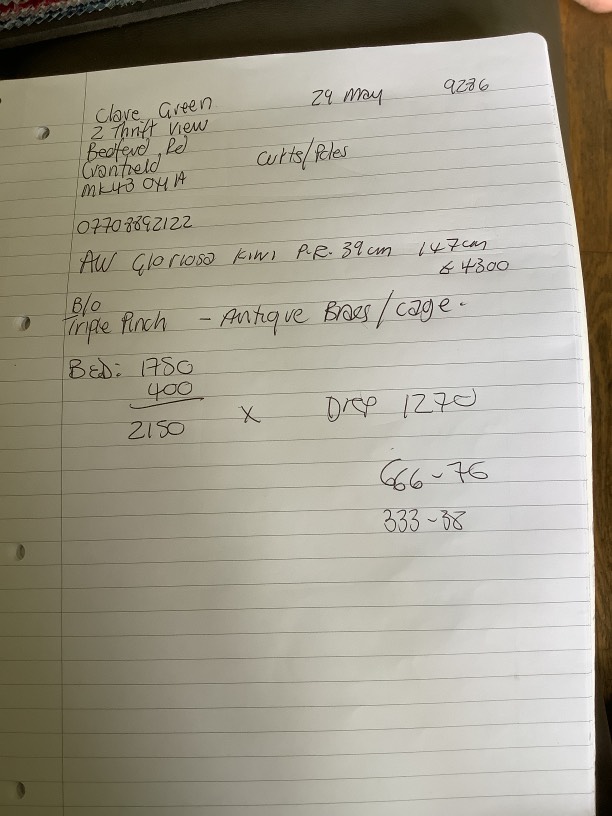 Clare Green 29 May 9286
2 Thrift View
Bedford Rd
Cranfield Curts/Poles
MK43 0HA
07708892122
AW Glorioso Kiwi P.R. 39cm 147cm
£4300
B/O
Triple Pinch - Antique Brass/cage.
BED: 1750
400
2150 x Drop 1270
666-76
333-38